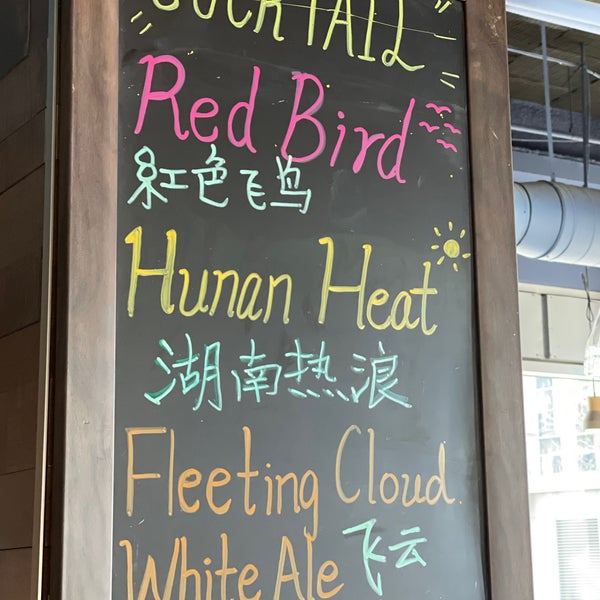 COCKTAIL
Red Bird
紅色飞鸟
Hunan Heat
湖南热浪
Fleeting Cloud
White Ale 飞云